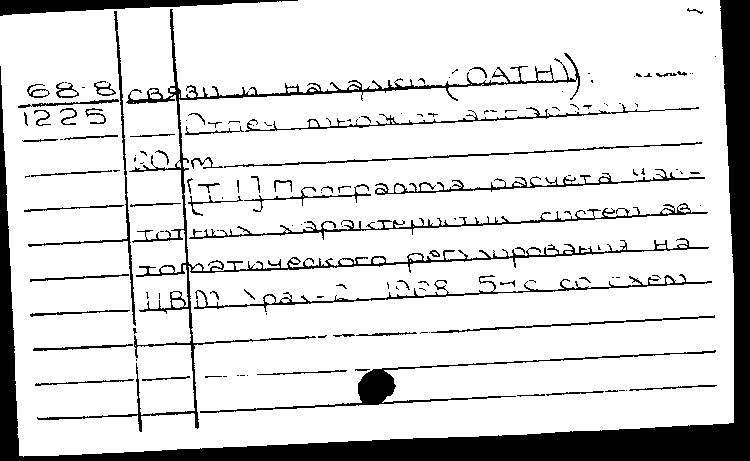 68-8 связи и наладки (ОАТН).
1225 Отпеч множит аппаратом
20 cm
[Т. 1] Программа расчета час-
тотных характеристик систем ав-
томатического регулирования на
ЦВМ Урал-2. 1968 54с со схем